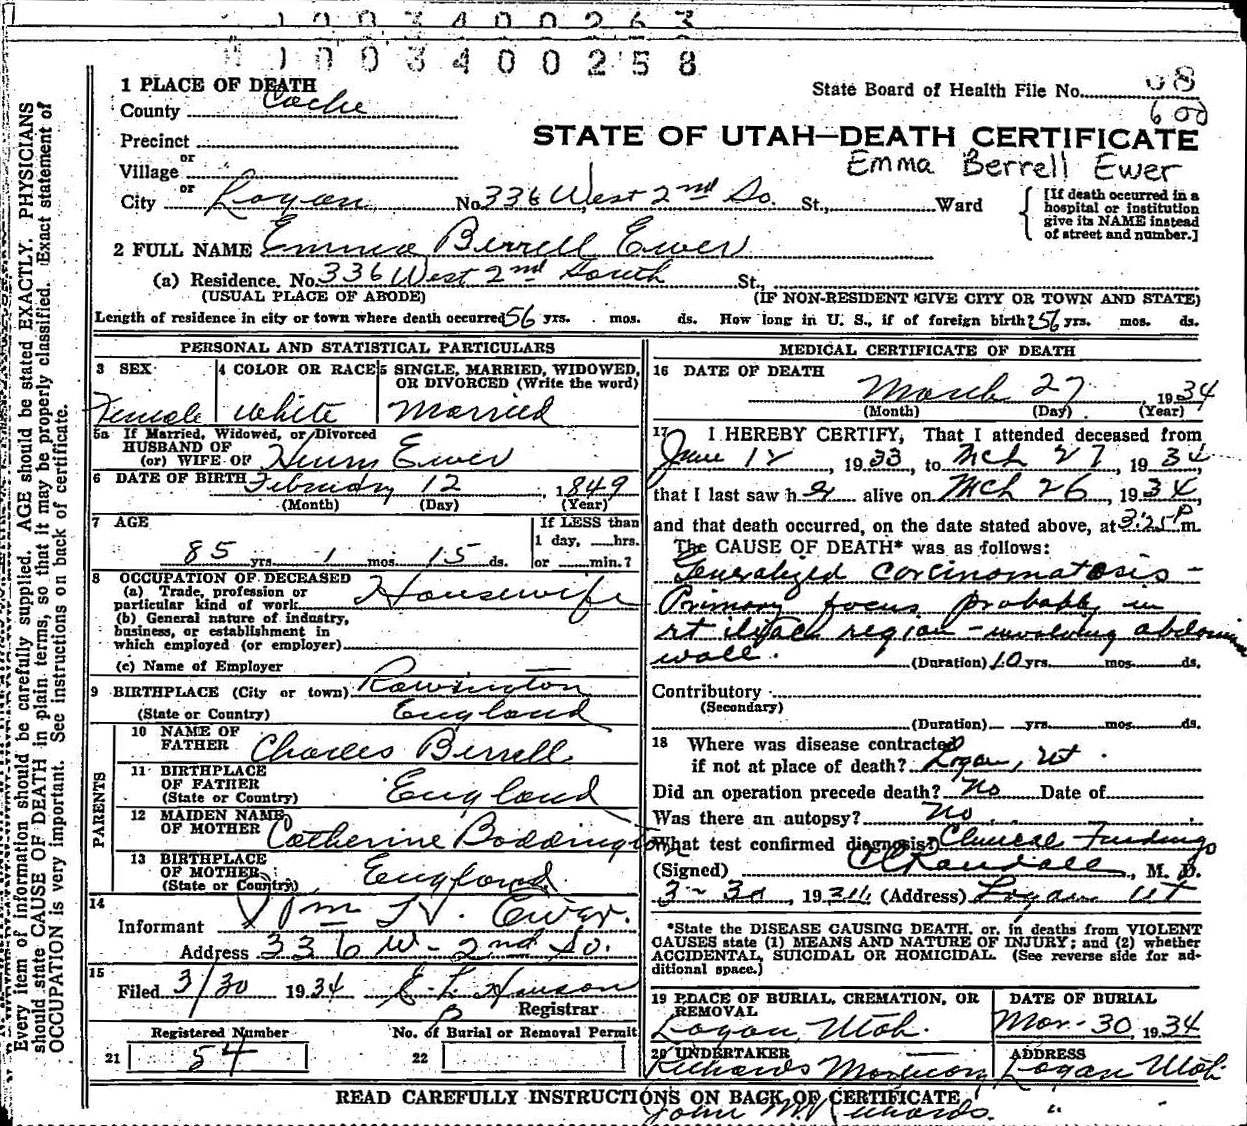 1 0 0 3 4 0 0 2 6 3
1 0 0 3 4 0 0 2 5 8
1 PLACE OF DEATH
County Cache
State Board of Health File No. 68
600
Precinct
STATE OF UTAH—DEATH CERTIFICATE
or
Village
Emma Berrell Ewer
or
City Logan No. 336 West 2nd So. St., Ward
[If death occurred in a hospital or institution give its NAME instead of street and number.]
2 FULL NAME Emma Berrell Ewer
(a) Residence. No. 336 West 2nd South St.,
(USUAL PLACE OF ABODE) (IF NON-RESIDENT GIVE CITY OR TOWN AND STATE)
Length of residence in city or town where death occurred 56 yrs. mos. ds. How long in U. S., if of foreign birth? 56 yrs. mos. ds.
PERSONAL AND STATISTICAL PARTICULARS
3 SEX 4 COLOR OR RACE 5 SINGLE, MARRIED, WIDOWED, OR DIVORCED (Write the word)
Female White Married
5a If Married, Widowed, or Divorced
HUSBAND OF
(or) WIFE OF Henry Ewer
6 DATE OF BIRTH February 12, 1849
(Month) (Day) (Year)
7 AGE If LESS than
1 day, hrs.
85 yrs. 1 mos. 15 ds. or min.?
8 OCCUPATION OF DECEASED
(a) Trade, profession or
particular kind of work Housewife
(b) General nature of industry,
business, or establishment in
which employed (or employer)
(c) Name of Employer
9 BIRTHPLACE (City or town) Rowington
(State or Country) England
PARENTS
10 NAME OF
FATHER Charles Berrell
11 BIRTHPLACE
OF FATHER
(State or Country) England
12 MAIDEN NAME
OF MOTHER Catherine Boddington
13 BIRTHPLACE
OF MOTHER
(State or Country) England
14
Informant Wm H. Ewer.
Address 336 W - 2nd So.
15
Filed 3/30 1934
Registrar
Registered Number No. of Burial or Removal Permit
21 54 22
MEDICAL CERTIFICATE OF DEATH
16 DATE OF DEATH
March 27, 1934
(Month) (Day) (Year)
17 I HEREBY CERTIFY, That I attended deceased from
June 12, 1933, to Mch 27, 1934,
that I last saw her alive on Mch 26, 1934,
and that death occurred, on the date stated above, at 3:25 P m.
The CAUSE OF DEATH* was as follows:
Generalized carcinomatosis -
Primary focus probably in
rt iliac region - involving abdomin
wall. (Duration) 10 yrs. mos. ds.
Contributory
(Secondary)
(Duration) yrs. mos. ds.
18 Where was disease contracted
if not at place of death? Logan, Ut
Did an operation precede death? No Date of
Was there an autopsy? No
What test confirmed diagnosis? Clinical Findings
(Signed) Randall, M. D.
3-30, 1934 (Address) Logan Ut
*State the DISEASE CAUSING DEATH, or, in deaths from VIOLENT
CAUSES state (1) MEANS AND NATURE OF INJURY; and (2) whether
ACCIDENTAL, SUICIDAL OR HOMICIDAL. (See reverse side for ad-
ditional space.)
19 PLACE OF BURIAL, CREMATION, OR REMOVAL DATE OF BURIAL
Logan, Utah. Mar-30, 1934
20 UNDERTAKER ADDRESS
Richards Mortuary Logan Utah
READ CAREFULLY INSTRUCTIONS ON BACK OF CERTIFICATE
John M. Richards. " "
Every item of information should be carefully supplied. AGE should be stated EXACTLY. PHYSICIANS
should state CAUSE OF DEATH in plain terms, so that it may be properly classified. Exact statement of
OCCUPATION is very important. See instructions on back of certificate.